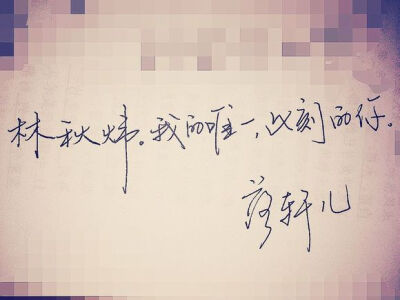 林秋炜。我的唯一,此刻的你。
落轩儿